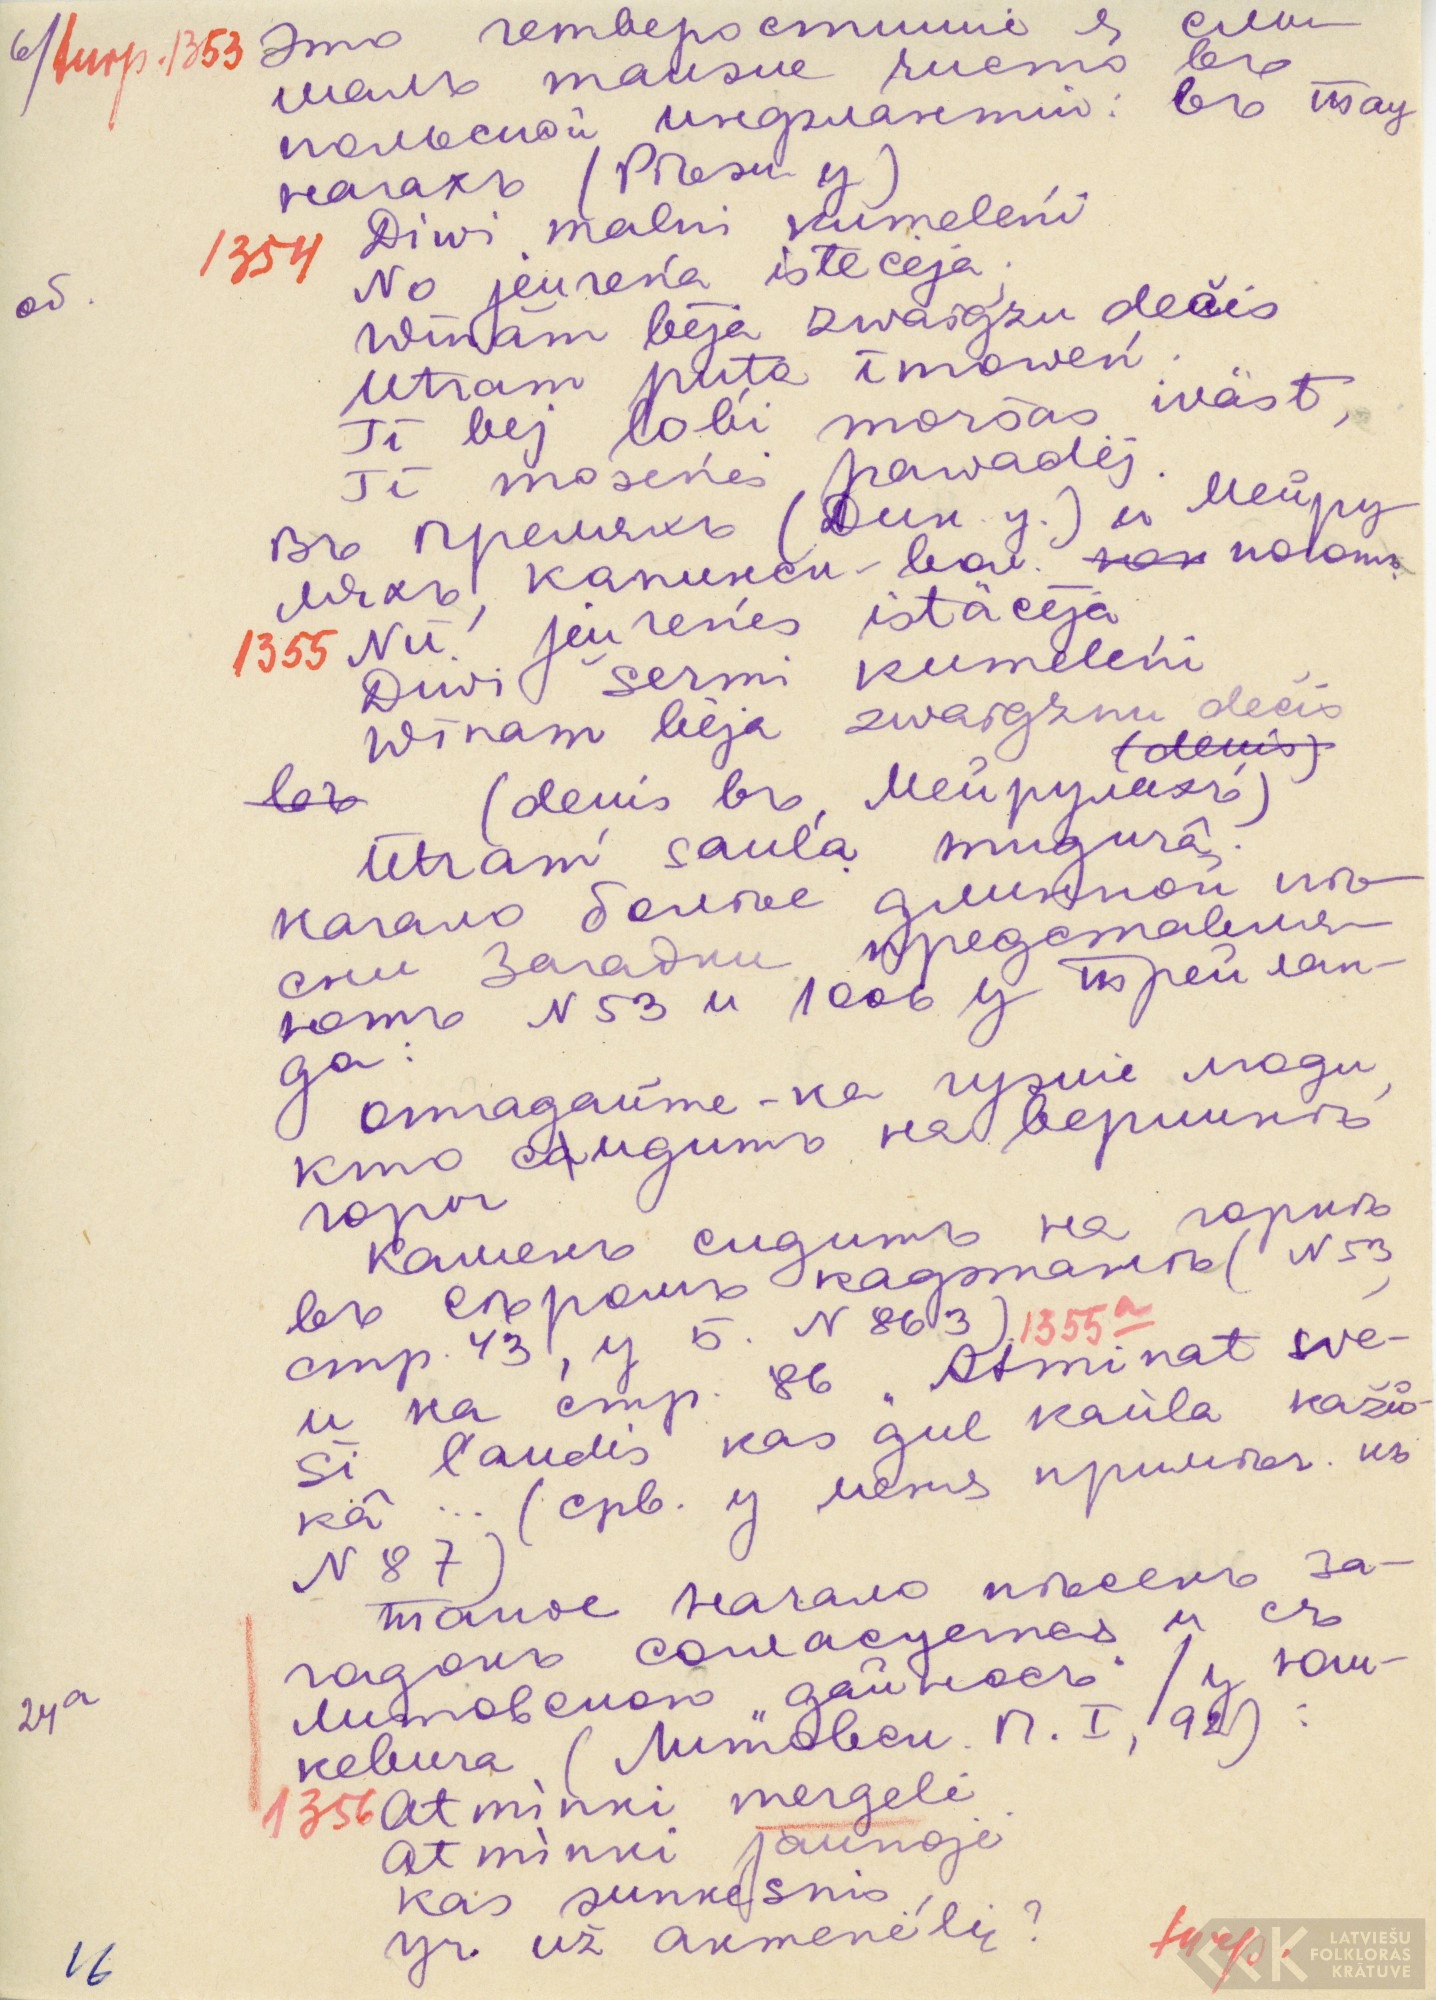 6/ turp. 1353 Это четверостишіе я слы-
шалъ также чисто въ
польской Инфлянтіи: въ Тау
нагахъ (Рѣжи. у)
1354 Diwi malni kumeleńi
об. No jeureńa istecėja,
Wīnam bēja zwaigžu dečis
Utram puta īmoweń.
Tī bej lobi moršas wäst,
Tī mozeńes pawadēj.
Въ Премяхъ (Дин. у.) и Мейру
ляхъ, Капинси-вол.
1355 Nū jeureńes istäcēja
Diwi sermi kumeleńi
Wīnam bēja zwaigžnu dečis
(denis)
въ (denis въ Мейруляхъ)
Utram saula mugurâ.
Начало болѣе длинной пѣ-
сни загадки представля-
ютъ N 53 и 1006 у Трейлан-
да:
Отгадайте-ка чужіе люди,
кто сидитъ на вершинѣ
горы
Камень сидитъ на горкѣ
въ сѣромъ кафтанѣ (N 53,
стр. 43, у Б. N 863) 1355a
и на стр. 86 „Atminat sve-
ši l'audis kas gul kaula kažo-
kâ ... (срв. у меня примѣч. къ
N 87)
Такое начало пѣсенъ за-
гадокъ согласуется и съ
24a литовскою дайносъ / у Юш-
кевича (Литовск. п. I, 92) :
1356 Atminki mergeli
Atminki jaunoji
kas sunkesnis
yr. už akmenėlį?
16 turp.
LATVIEŠU
FOLKLORAS
KRĀTUVE